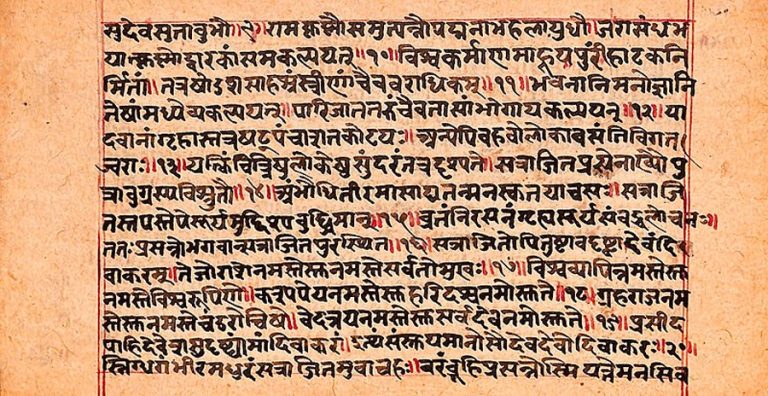 सुदेवसुतावुभौ ॥९॥ रामकृष्णौसमुत्पन्नौपद्मनाभहलायुधौ ॥ जरासंधभ
यात्कृष्णोद्वारकांसमकल्पयत् ॥१०॥ विश्वकर्माणमाहूयपुरींहाटकनि
र्मितां ॥ तत्रषोडशसाहस्रंस्त्रीणांचैवशताधिकम् ॥११॥ भवनानिमनोज्ञानि
तेषांमध्येव्यकल्पयत् ॥ पारिजाततरुंचैवतासांभोगायकल्पयत् ॥१२॥ या
दवानांगृहास्तत्रषट्पंचाशतकोटयः ॥ अन्येपिबहवोलोकावसंतिविगत
ज्वराः ॥१३॥ यत्किंचित्त्रिषुलोकेषुसुंदरंतत्रदृश्यते ॥ सत्राजितप्रसेनाख्यौपु
त्रावुग्रस्यविश्रुतौ ॥१४॥ अंभोधितीरमासाद्यतन्मनस्कतयाचसः ॥ सत्राजि
तस्तपस्तेपेसूर्यमुद्दिश्यबुद्धिमान् ॥१५॥ व्रतंनिरसनंगृह्यसूर्यसंबद्धलोचनः ॥
ततःप्रसन्नोभगवान्सत्राजितपुरस्थितः ॥१६॥ सत्राजितोपितुष्टावदृष्ट्वादेवंदि
वाकरम् ॥ तेजोराशेनमस्तेस्तुनमस्तेसर्वतोमुख ॥१७॥ विश्वव्यापिन्नमस्तेस्तु
नमस्तेविश्वरूपिणे ॥ काश्यपेयनमस्तेस्तुहरिदश्वनमोस्तुते ॥१८॥ ग्रहराजनम
स्तेस्तुनमस्तेचंडरोचिषे ॥ वेदत्रयनमस्तेस्तुसर्वदेवनमोस्तुते ॥१९॥ प्रसीद
पाहिदेवेशसुदृष्ट्यामांदिवाकर ॥ इत्थंसंस्तूयमानोसौदेवदेवोदिवाकरः ॥२०॥
स्निग्धगंभीरमधुरंसत्राजितमुवाचह ॥ वरंब्रूहिप्रसन्नोस्मियत्तेमनसिव